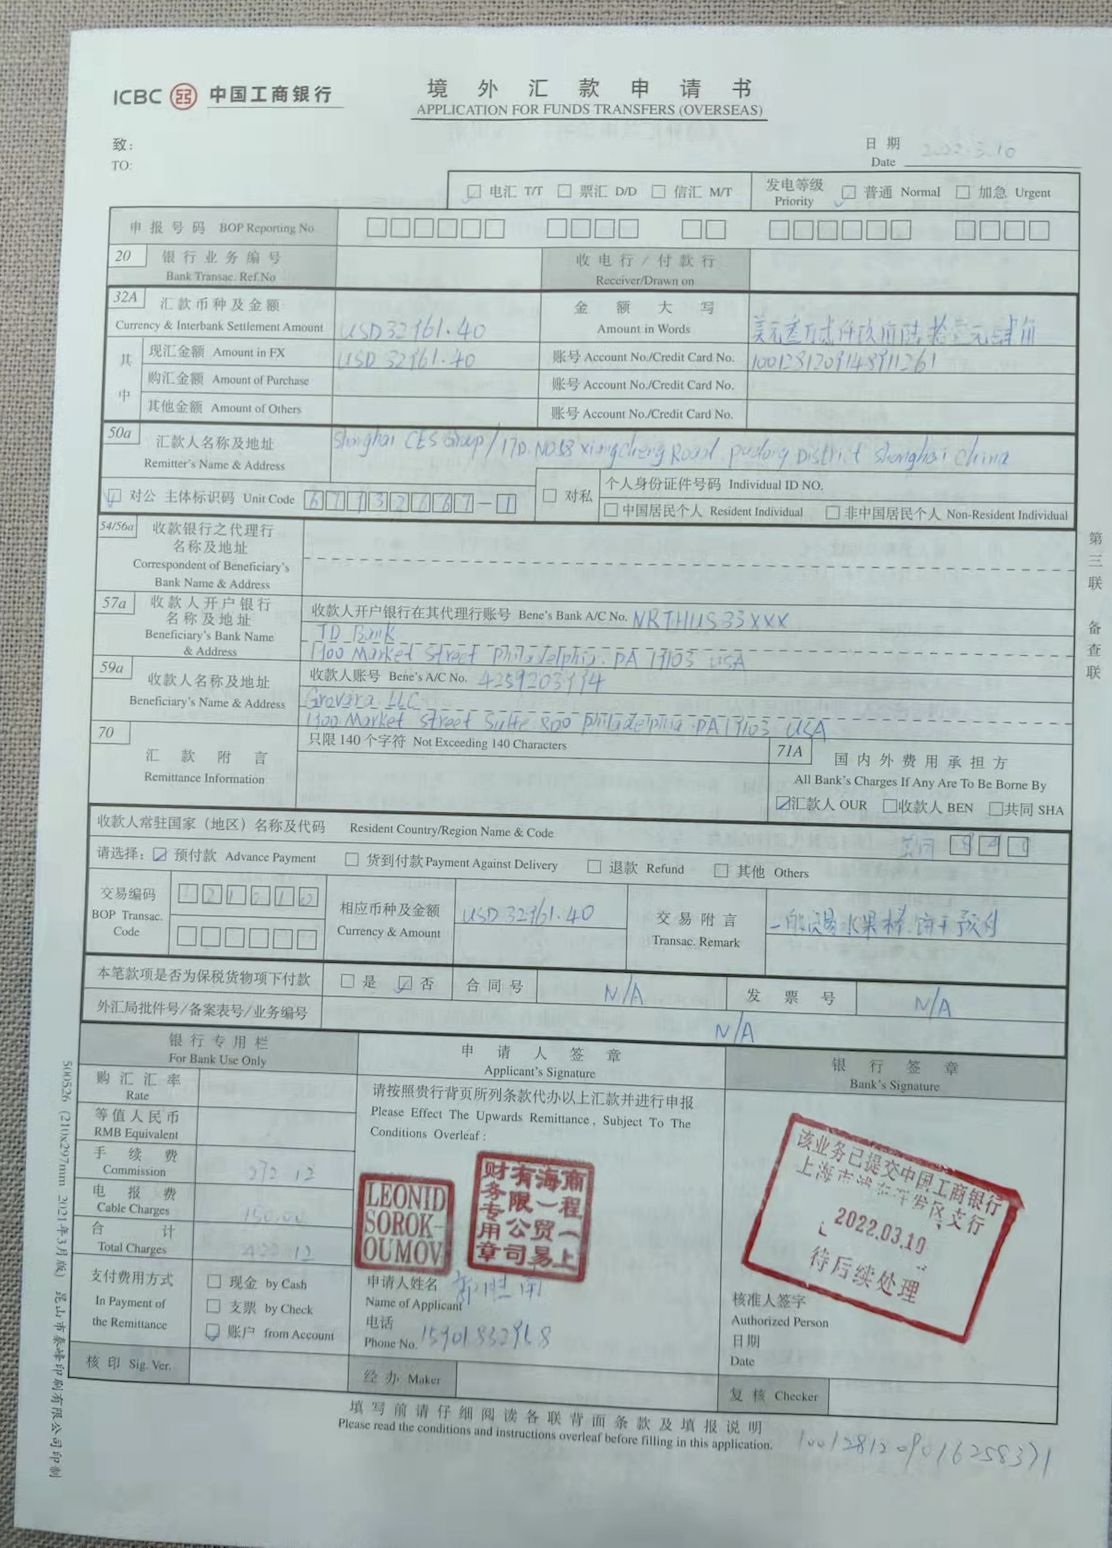 ICBC 中国工商银行
境外汇款申请书
APPLICATION FOR FUNDS TRANSFERS (OVERSEAS)
致:
TO:
日期 2022.3.10
Date
电汇 T/T 票汇 D/D 信汇 M/T 发电等级 Priority 普通 Normal 加急 Urgent
申报号码 BOP Reporting No.
20 银行业务编号 Bank Transac. Ref.No 收电行/付款行 Receiver/Drawn on
32A 汇款币种及金额 Currency & Interbank Settlement Amount USD 32961.40 金额大写 Amount in Words 美元叁万贰仟玖佰陆拾壹元肆角
其中
现汇金额 Amount in FX USD 32961.40 账号 Account No./Credit Card No.
购汇金额 Amount of Purchase 账号 Account No./Credit Card No.
其他金额 Amount of Others 账号 Account No./Credit Card No.
50a 汇款人名称及地址 Remitter's Name & Address Shanghai CES Group/17D. NO58 xiangcheng Road. pudong District Shanghai China
对公 主体标识码 Unit Code 对私 个人身份证件号码 Individual ID NO.
中国居民个人 Resident Individual 非中国居民个人 Non-Resident Individual
54/56a 收款银行之代理行
名称及地址
Correspondent of Beneficiary's
Bank Name & Address
57a 收款人开户银行 名称及地址 Beneficiary's Bank Name & Address
收款人开户银行在其代理行账号 Bene's Bank A/C No. NRTHUS33XXX
TD Bank
1700 Market Street philadelphia. PA 19103 USA
59a 收款人名称及地址 Beneficiary's Name & Address
收款人账号 Bene's A/C No.
Grovara LLC
Market Street Suite 800 philadelphia. PA 19103 USA
70 汇款附言 Remittance Information
只限140个字符 Not Exceeding 140 Characters
71A 国内外费用承担方
All Bank's Charges If Any Are To Be Borne By
汇款人 OUR 收款人 BEN 共同 SHA
收款人常驻国家(地区)名称及代码 Resident Country/Region Name & Code 美国 840
请选择: 预付款 Advance Payment 货到付款 Payment Against Delivery 退款 Refund 其他 Others
交易编码 BOP Transac. Code 121010 相应币种及金额 Currency & Amount USD 32961.40 交易附言 Transac. Remark 一般贸易水果棒.饼干预付
本笔款项是否为保税货物项下付款 是 否 合同号 N/A 发票号 N/A
外汇局批件号/备案表号/业务编号 N/A
银行专用栏 For Bank Use Only
申请人签章 Applicant's Signature
银行签章 Bank's Signature
购汇汇率 Rate
等值人民币 RMB Equivalent
手续费 Commission 272.12
电报费 Cable Charges 150.00
合计 Total Charges 422.12
支付费用方式 In Payment of the Remittance
现金 by Cash
支票 by Check
账户 from Account
核印 Sig. Ver.
请按照贵行背页所列条款代办以上汇款并进行申报
Please Effect The Upwards Remittance, Subject To The
Conditions Overleaf:
LEONID
SOROK-
OUMOV
商程一上
海一贸易
有限公司
财务专用章
申请人姓名
Name of Applicant
电话
Phone No.
经办 Maker
该业务已提交中国工商银行
2022.03.10
待后续处理
核准人签字
Authorized Person
日期
Date
复核 Checker
填写前请仔细阅读各联背面条款及填报说明
Please read the conditions and instructions overleaf before filling in this application.
1001281209016258371
第三联 备查联
500526 (210x297mm 2021年3月版) 昆山市泰峰印刷有限公司印制